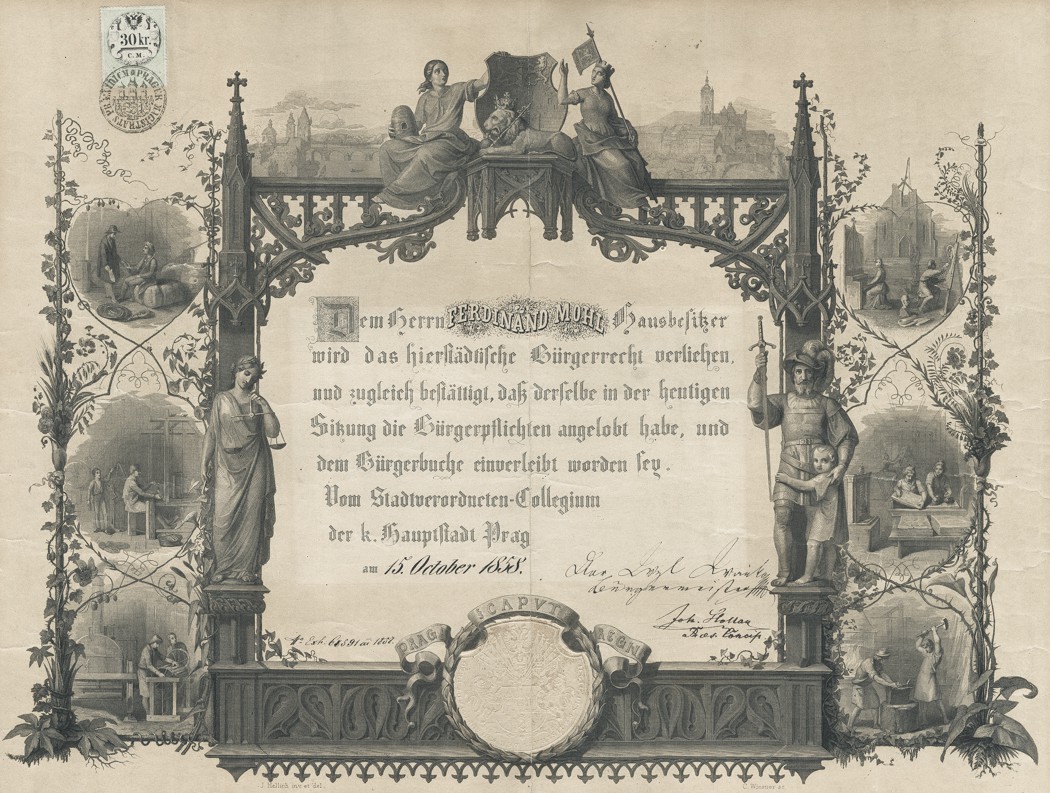 30 kr.
C. M.
PRAGER MAGISTRATS PRÆSIDIUM
Dem Herrn FERDINAND MOHL Hausbesitzer
wird das hierstädtische Bürgerrecht verliehen,
und zugleich bestättigt, daß derselbe in der heutigen
Sitzung die Bürgerpflichten angelobt habe, und
dem Bürgerbuche einverleibt worden sey.
Vom Stadtverordneten-Collegium
der k. Hauptstadt Prag
am 15. October 1858.
Bürgermeister
Joh.
PRAGA CAPVT REGNI
J. Hellich inv et del.